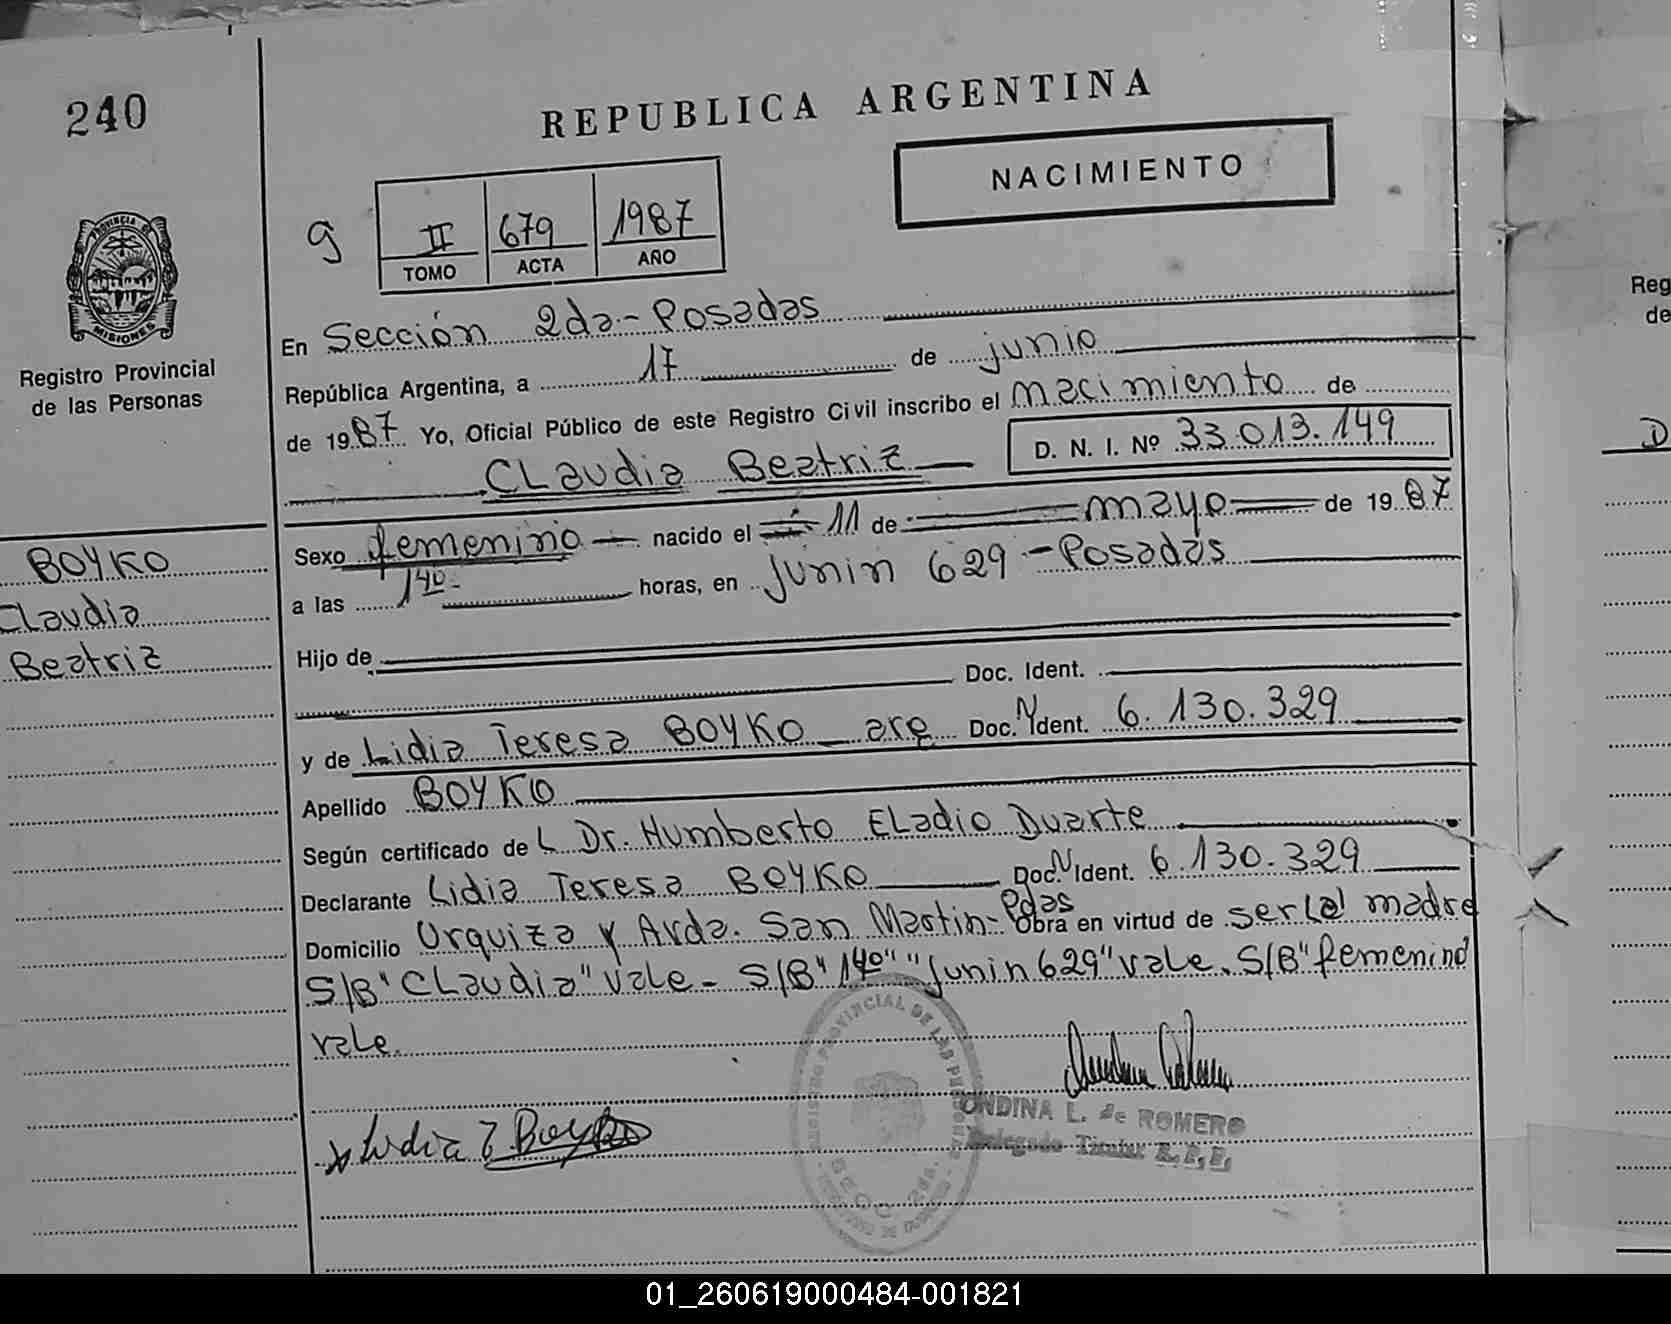 240
REPUBLICA ARGENTINA
NACIMIENTO
g
II 679 1987
TOMO ACTA AÑO
PROVINCIA DE
MISIONES
Registro Provincial
de las Personas
En Sección 2da - Posadas
República Argentina, a 17 de junio
de 1987 Yo, Oficial Público de este Registro Civil inscribo el nacimiento de
CLaudia Beatriz D. N. I. Nº 33.013.149
Sexo femenino nacido el 11 de mayo de 1987
a las 14⁰ horas, en Junin 629 - Posadas
Hijo de
Doc. Ident.
y de Lidia Teresa BOYKO arg Doc. Ident. 6.130.329
Apellido BOYKO
Según certificado de L Dr. Humberto ELadio Duarte
Declarante Lidia Teresa BOYKO Doc. Ident. 6.130.329
Domicilio Urquiza y Avda. San Martin - Pdas Obra en virtud de ser La madre
S/B "CLaudia" vale - S/B "14⁰" "Junin 629" vale. S/B "femenino"
vale.
BOYKO
CLaudia
Beatriz
Lidia T Boyko
REGISTRO PROVINCIAL DE LAS PERSONAS
SECC. 2da.
ONDINA L. de ROMERO
Delegado Titular R. P. P.
Reg
de
D
01_260619000484-001821